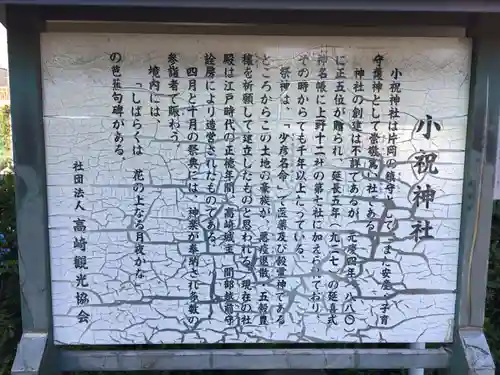 小祝神社
小祝神社は片岡の鎮守として、また安産・子育
守護神として崇敬篤い社である。
神社の創建は不詳であるが、元慶四年(八八〇)
に正五位が贈られ、延長五年(九二七)の延喜式
神名帳に上野十二社の第七社に加えられており
その時からでも千年以上たっている。
祭神は、「少彦名命」で医薬及び穀霊神である
ところからこの土地の豪族が、悪疫退散・五穀豊
穣を祈願して建立したものと思われる。現在の社
殿は江戸時代の正徳年間、高崎城主、間部越前守
詮房により造営されたものである。
四月と十月の祭典には、神楽が奉納され多数の
参詣者で賑わう。
境内には、
「しばらくは 花の上なる月夜かな」
の芭蕉句碑がある。
社団法人 高崎観光協会